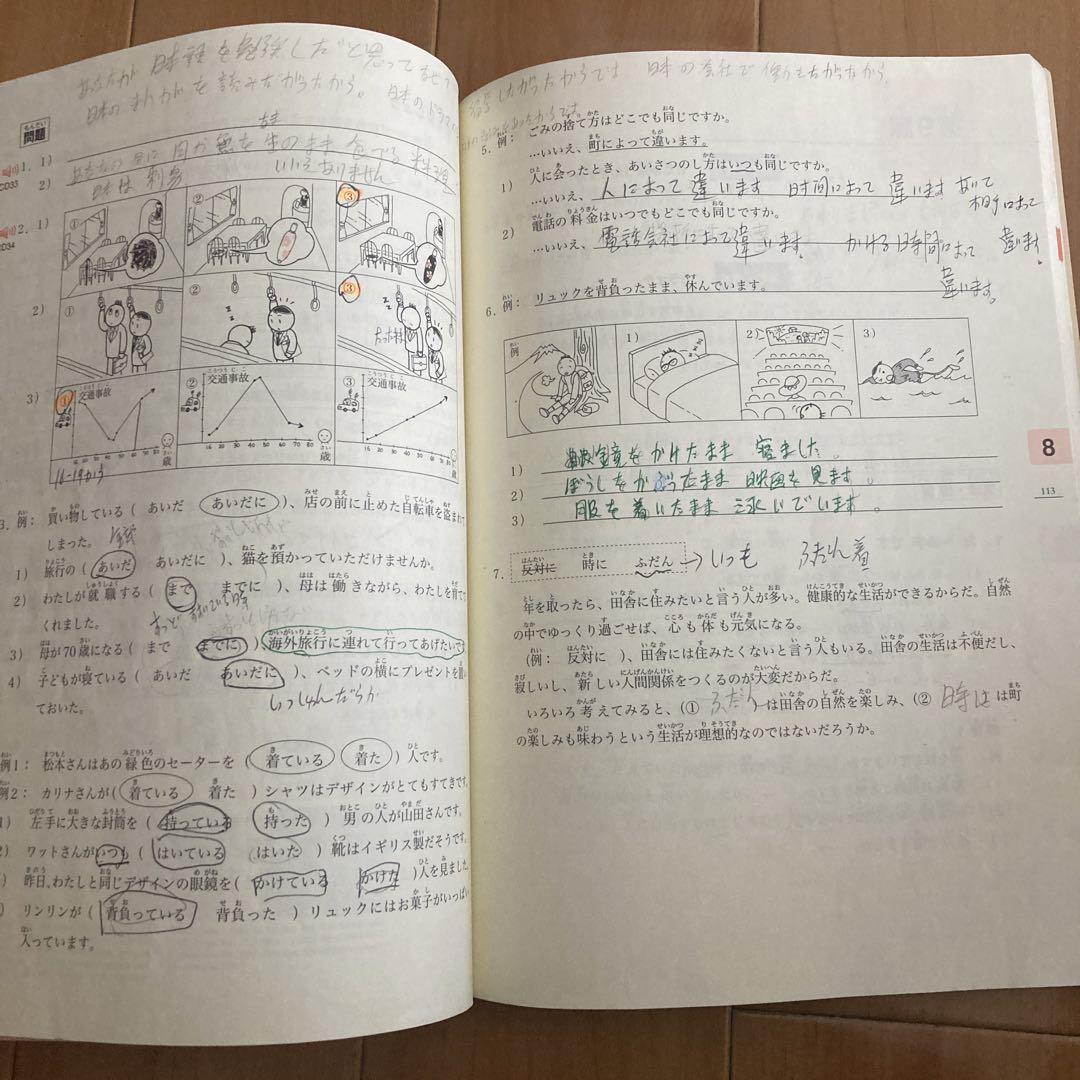 日本語を勉強した と思って
日本のまんがを読みたがったから。 日本のドラマ
もんだい
問題
1. 1)
CD33
肉か魚を生のまま食べる料理
2)
いいえありません
日本は刺身
2. 1)
CD34
① ② ③
2)
① ② ③
たったまま
3)
① 交通事故 ② 交通事故 ③ 交通事故
16 20 30 40 50 60 70 80 歳
16-19から
3. 例： 買い物している（ あいだ あいだに ）、店の前に止めた自転車を盗まれて
しまった。
1) 旅行の（ あいだ あいだに ）、猫を預かっていただけませんか。
2) わたしが就職する（ まで までに ）、母は働きながら、わたしを育て
くれました。
3) 母が70歳になる（ まで までに ）、海外旅行に連れて行ってあげたいで
4) 子どもが寝ている（ あいだ あいだに ）、ベッドの横にプレゼントを
ておいた。
例1： 松本さんはあの緑色のセーターを（ 着ている 着た ）人です。
例2： カリナさんが（ 着ている 着た ）シャツはデザインがとてもすてきです。
1) 左手に大きな封筒を（ 持っている 持った ）男の人が山田さんです。
2) ワットさんがいつも（ はいている はいた ）靴はイギリス製だそうです。
) 昨日、わたしと同じデザインの眼鏡を（ かけている かけた ）人を見ました
) リンリンが（ 背負っている 背負った ）リュックにはお菓子がいっぱい
入っています。
したがったからです 日本の会社で働きたがったから。
5. 例： ごみの捨て方はどこでも同じですか。
…いいえ、町によって違います。
1) 人に会ったとき、あいさつのし方はいつも同じですか。
…いいえ、人によって違います 時間によって違います
相手によって
2) 電話の料金はいつでもどこでも同じですか。
…いいえ、電話会社によって違います。 かける時間によって 違います。
違います。
6. 例： リュックを背負ったまま、休んでいます。
例 1) 2) 3)
1) 眼鏡をかけたまま 寝ました。
2) ぼうしをかぶったまま 映画を見ます。
3) 服を着いたまま 泳いでいます。
8
113
7. 反対に 時に ふだん →いつも ふだん着
年を取ったら、田舎に住みたいと言う人が多い。健康的な生活ができるからだ。自然
の中でゆっくり過ごせば、心も体も元気になる。
（例： 反対に ）、田舎には住みたくないと言う人もいる。田舎の生活は不便だし、
寂しいし、新しい人間関係をつくるのが大変だからだ。
いろいろ考えてみると、（① ふだん は田舎の自然を楽しみ、（② 時は は町
の楽しみも味わうという生活が理想的なのではないだろうか。